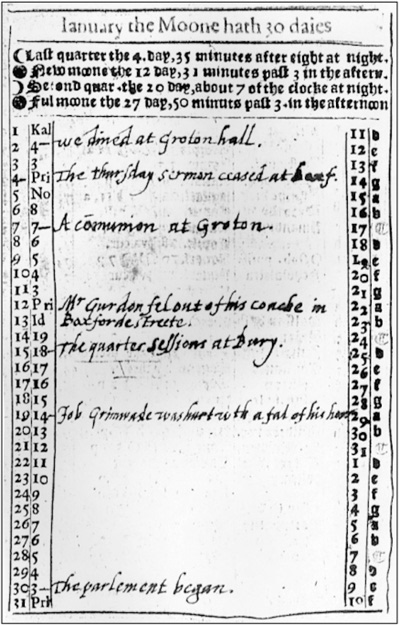 Ianuary the Moone hath 30 daies
Last quarter the 4. day, 35 minutes after eight at night.
New moone the 12 day, 31 minutes past 3 in the aftern.
Second quar. the 20 day, about 7 of the clocke at night.
Ful moone the 27 day, 50 minuts past 3. in the afternoon
1 Kal 11 D
2 4 we dined at Groton hall. 12 e
3 3 13 f
4 Pri The thursday sermon ceased at boxf. 14 g
5 No 15 a
6 8 16 b
7 7 A cōmunion at Groton. 17 C
8 6 18 D
9 5 19 e
10 4 20 f
11 3 21 g
12 Pri Mr Gurdon fel out of his coache in 22 a
13 Id Boxforde streete. 23 b
14 19 24 C
15 18 The quarter sessions at Bury. 25 D
16 17 26 e
17 16 27 f
18 15 28 g
19 14 Job Grimwade was hurt with a fal of his 29 a
20 13 30 b
21 12 31 C
22 11 1 D
23 10 2 e
24 9 3 f
25 8 4 g
26 7 5 a
27 6 6 b
28 5 7 C
29 4 8 D
30 3 The parlement began. 9 e
31 Pri 10 f